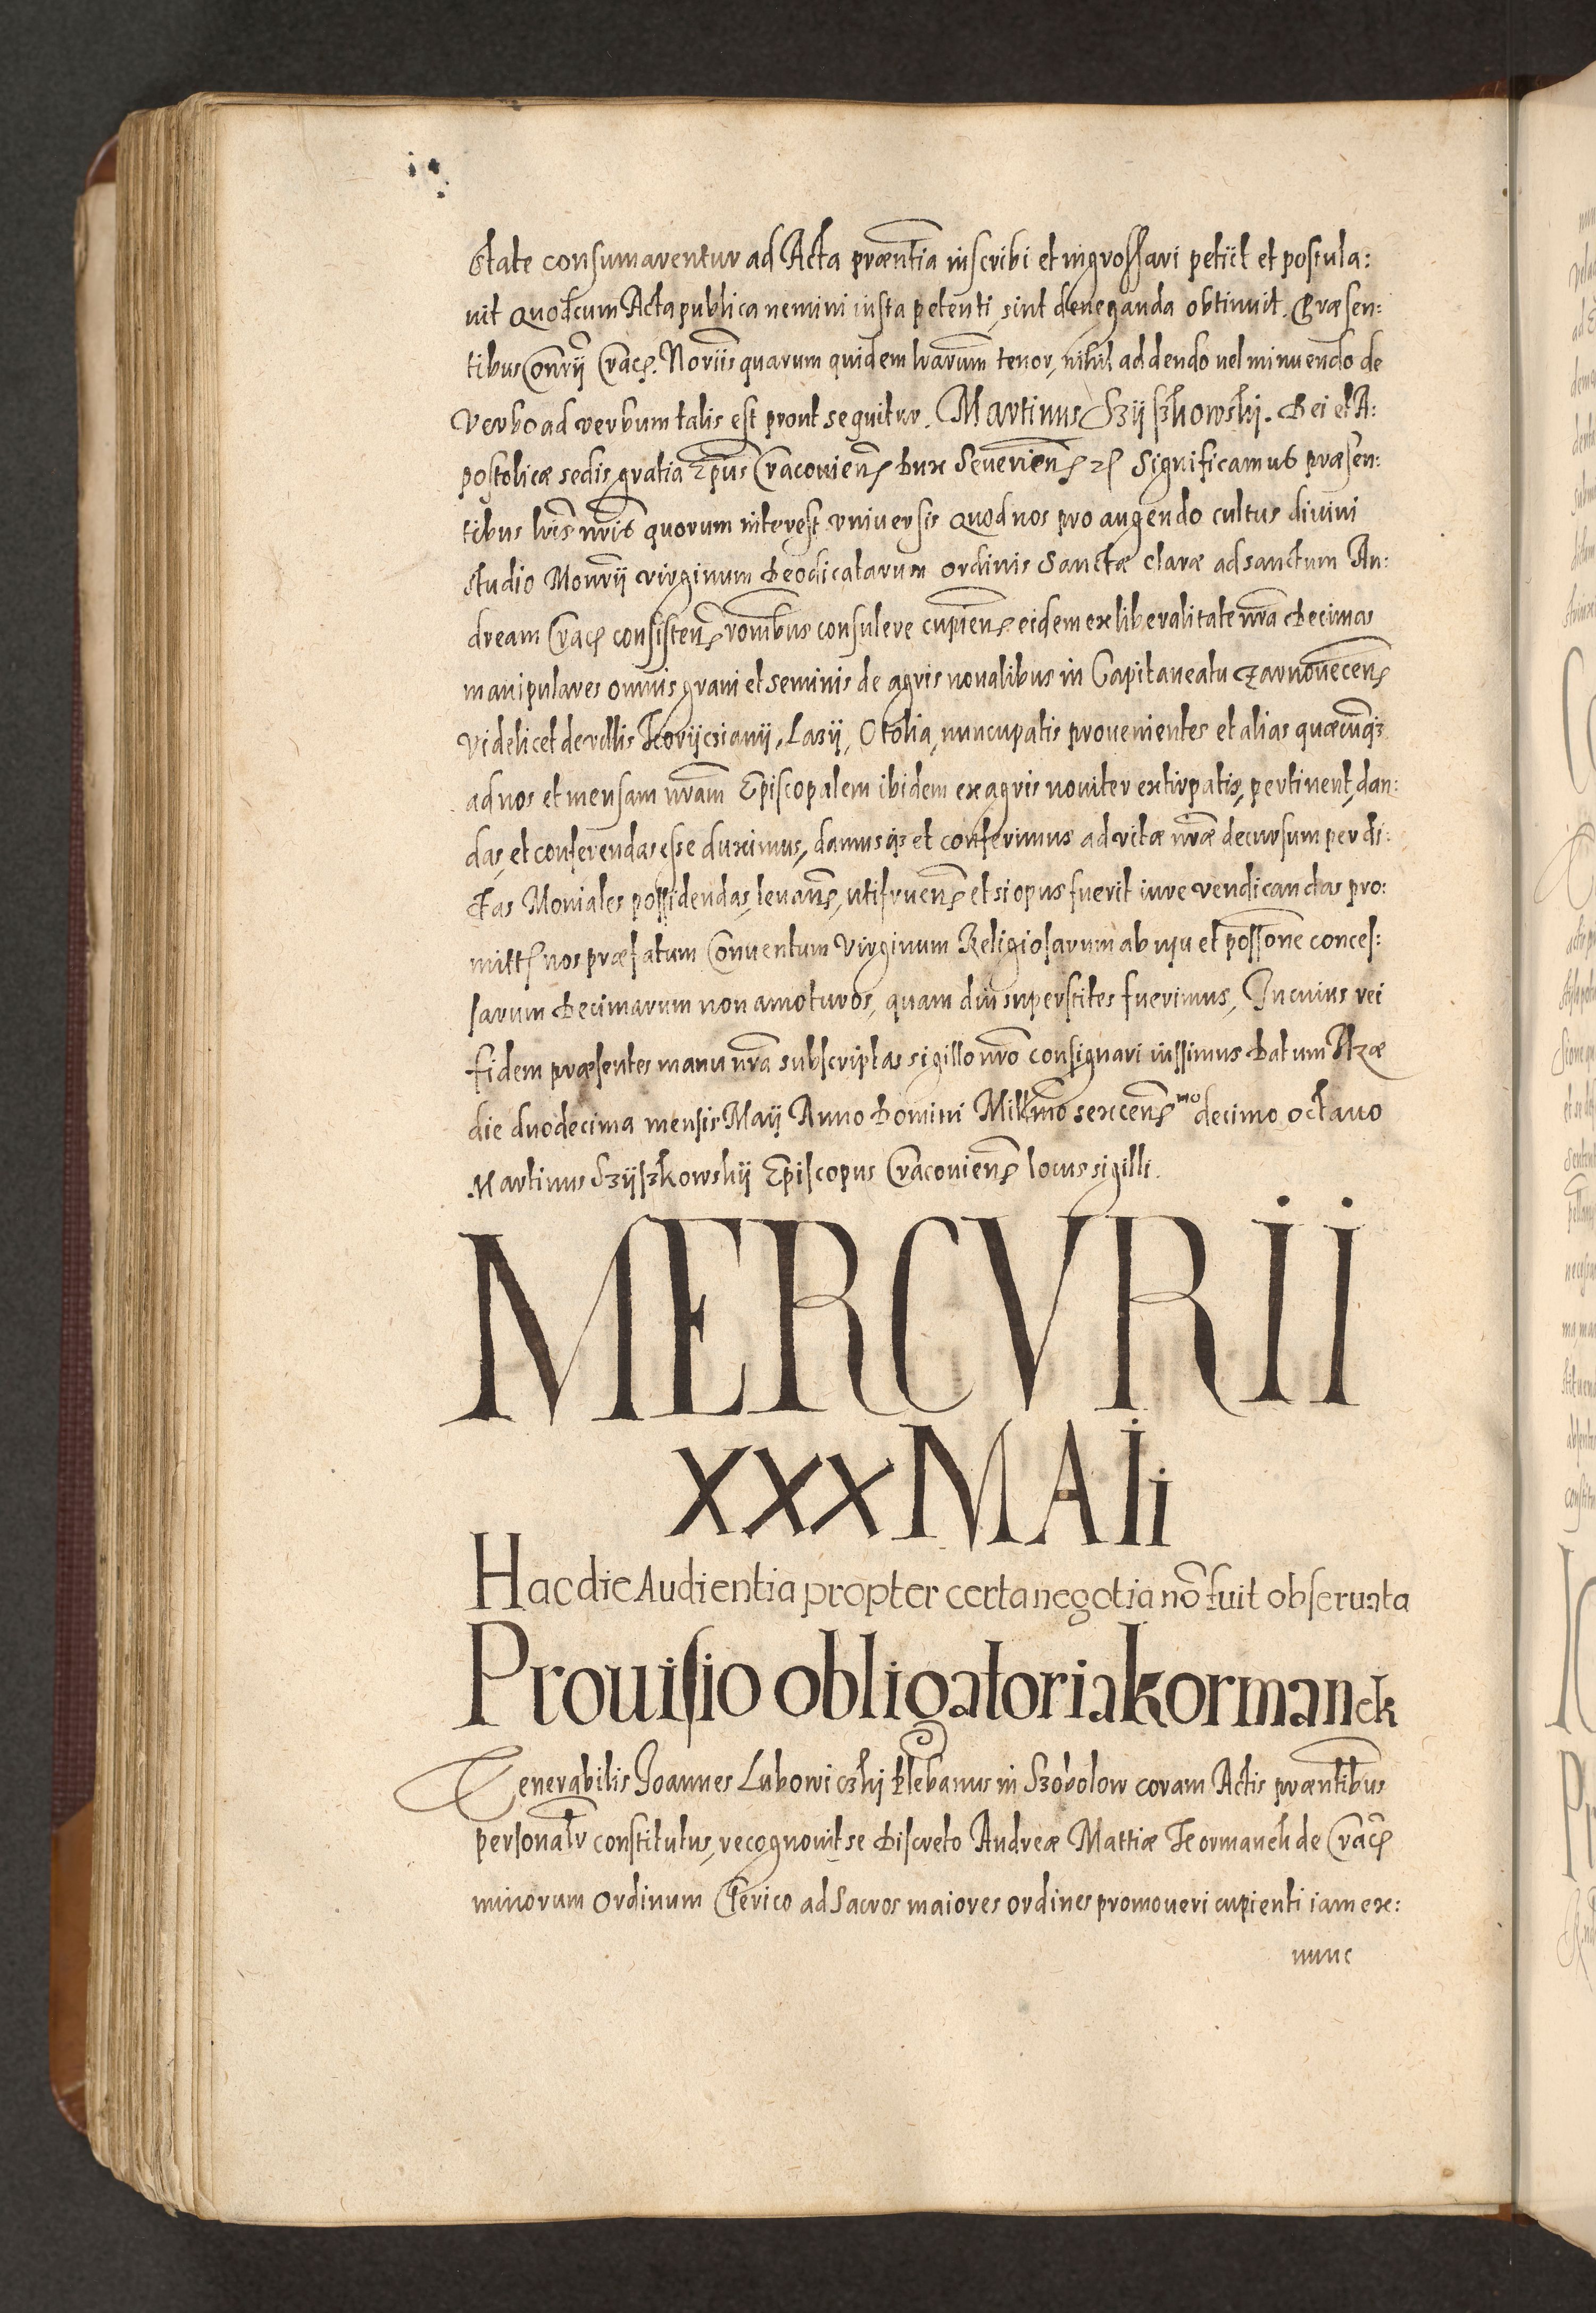 state consumarentur ad Acta præntia inscribi et ingrossari petiit et postula:
uit Quod cum Acta publica nemini iusta petenti, sint deneganda obtinuit. Præsen:
tibus Conrÿ Crac. Noriis quarum quidem lrarum tenor, nihil addendo uel minuendo de
Verbo ad verbum talis est prout sequitur. Martinus Szÿszkowskj. Dei et A:
postolicæ sedis gratia Epus Cracouiens Dux Seueriens Significamus præsen:
tibus lris nris quorum interest vniuersis Quod nos pro augendo cultus diuini
studio Monrÿ virginum Deodicatarum ordinis Sanctæ claræ ad sanctum An:
dream Crac consistens ronibus consulere cupiens eidem ex liberalitate nra Decimas
manipulares omnis grani et seminis de agris noualibus in Capitaneatu Czarnouecens
videlicet de villis Korÿczianÿ, Lazÿ, Otolia, nuncupatis prouenientes et alias quæcunqз
ad nos et mensam nram Episcopalem ibidem ex agris nouiter extirpatis, pertinent, dan:
das, et conferendas esse duximus, damusqз et conferimus ad vitæ nræ decursum per di:
ctas Moniales possidendas, leuans, utifruens et si opus fuerit iure vendicandas pro:
mitt nos præfatum Conuentum Virginum Religiosarum ab usu et possone conces:
sarum Decimarum non amoturos, quam diu superstites fuerimus, In cuius rei
fidem præsentes manu nra subscriptas sigillo nro consignari iussimus Datum Ilzæ
die duodecima mensis Maÿ Anno Domini Millmo sexcens mo decimo octauo
Martinus Szÿszkowskÿ Episcopus Cracouiens locus sigilli.
MERCVRII
XXX MAIi
Hac die Audientia propter certa negotia nõ fuit obseruata
Prouisio obligatoria kormanek
Venerabilis Joannes Lubowiczkj Plebanus in Szobolow coram Actis præntibus
personalr constitutus, recognouit se Discreto Andreæ Mattiæ Kormanek de Crac
minorum Ordinum Clerico ad Sacros maiores ordines promoueri cupienti iam ex:
nunc